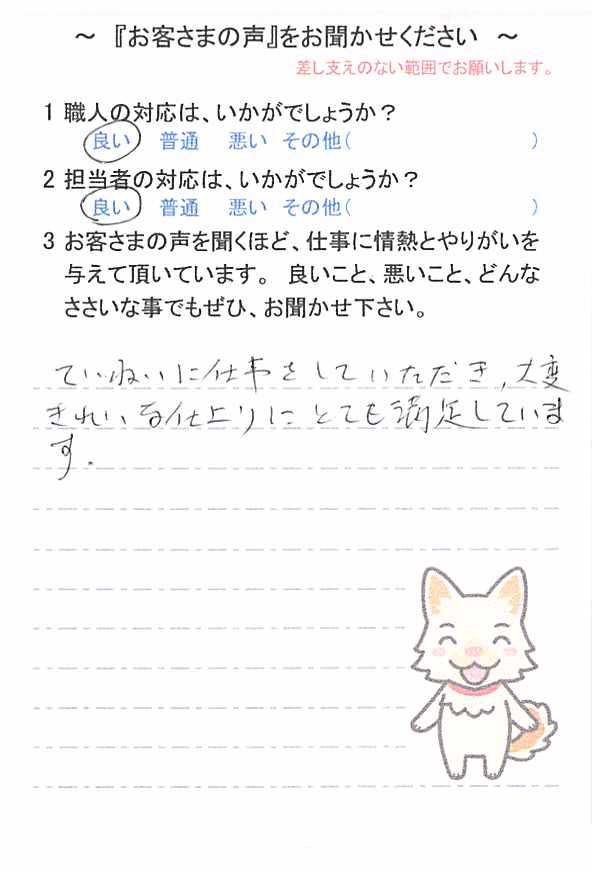 ～ 『お客さまの声』をお聞かせください ～
差し支えのない範囲でお願いします。
1 職人の対応は、いかがでしょうか？
良い 普通 悪い その他( )
2 担当者の対応は、いかがでしょうか？
良い 普通 悪い その他( )
3 お客さまの声を聞くほど、仕事に情熱とやりがいを
与えて頂いています。 良いこと、悪いこと、どんな
ささいな事でもぜひ、お聞かせ下さい。
ていねいに仕事をしていただき、大変
きれいな仕上りにとても満足していま
す.